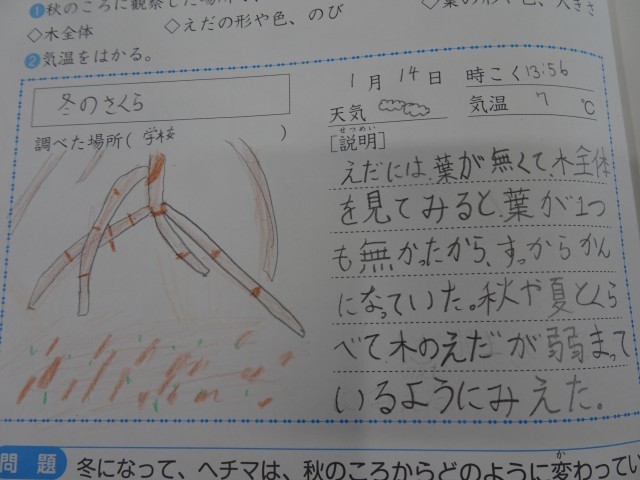 ❶秋のころに観察した場所
◇木全体　◇えだの形や色、のび　◇葉の形や色、大きさ
❷気温をはかる。
冬のさくら
調べた場所(学校)
1月14日　時こく13:56
天気　気温 7 ℃
[説明]
せつめい
えだには、葉が無くて、木全体
を見てみると、葉が1つ
も無かったから、すっからかん
になっていた。秋や夏とくら
べて、木のえだが弱まって
いるようにみえた。
問題　冬になって、ヘチマは、秋のころからどのように変わってい
か